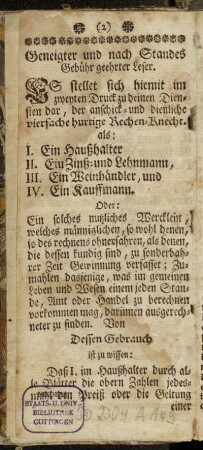 (2)
Geneigter und nach Standes
Gebühr geehrter Leser.
ES stellet sich hiemit im
zweyten Druck zu deinen Dien-
sten dar, der anschick- und dienliche
vierfache hurtige Rechen-Knecht,
als:
I. Ein Haußhalter
II. Ein Zinß- und Lehnmann,
III. Ein Weinhändler, und
IV. Ein Kauffmann.
Oder:
Ein solches nutzliches Wercklein,
welches männiglichen, so wohl denen,
so des rechnens ohnerfahren, als denen,
die dessen kundig sind, zu sonderbah-
rer Zeit Gewinnung verfasset; Zu-
mahlen dasjenige, was im gemeinen
Leben und Wesen einem jeden Stan-
de, Amt oder Handel zu berechnen
vorkommen mag, darinnen ausgerech-
neter zu finden. Von
Dessen Gebrauch
ist zu wissen:
Daß I. im Haußhalter durch al-
le Blätter die obern Zahlen jedes-
mahl den Preiß oder die Geltung
einer
STAATS- U. UNIV.
BIBLIOTHEK
GÖTTINGEN